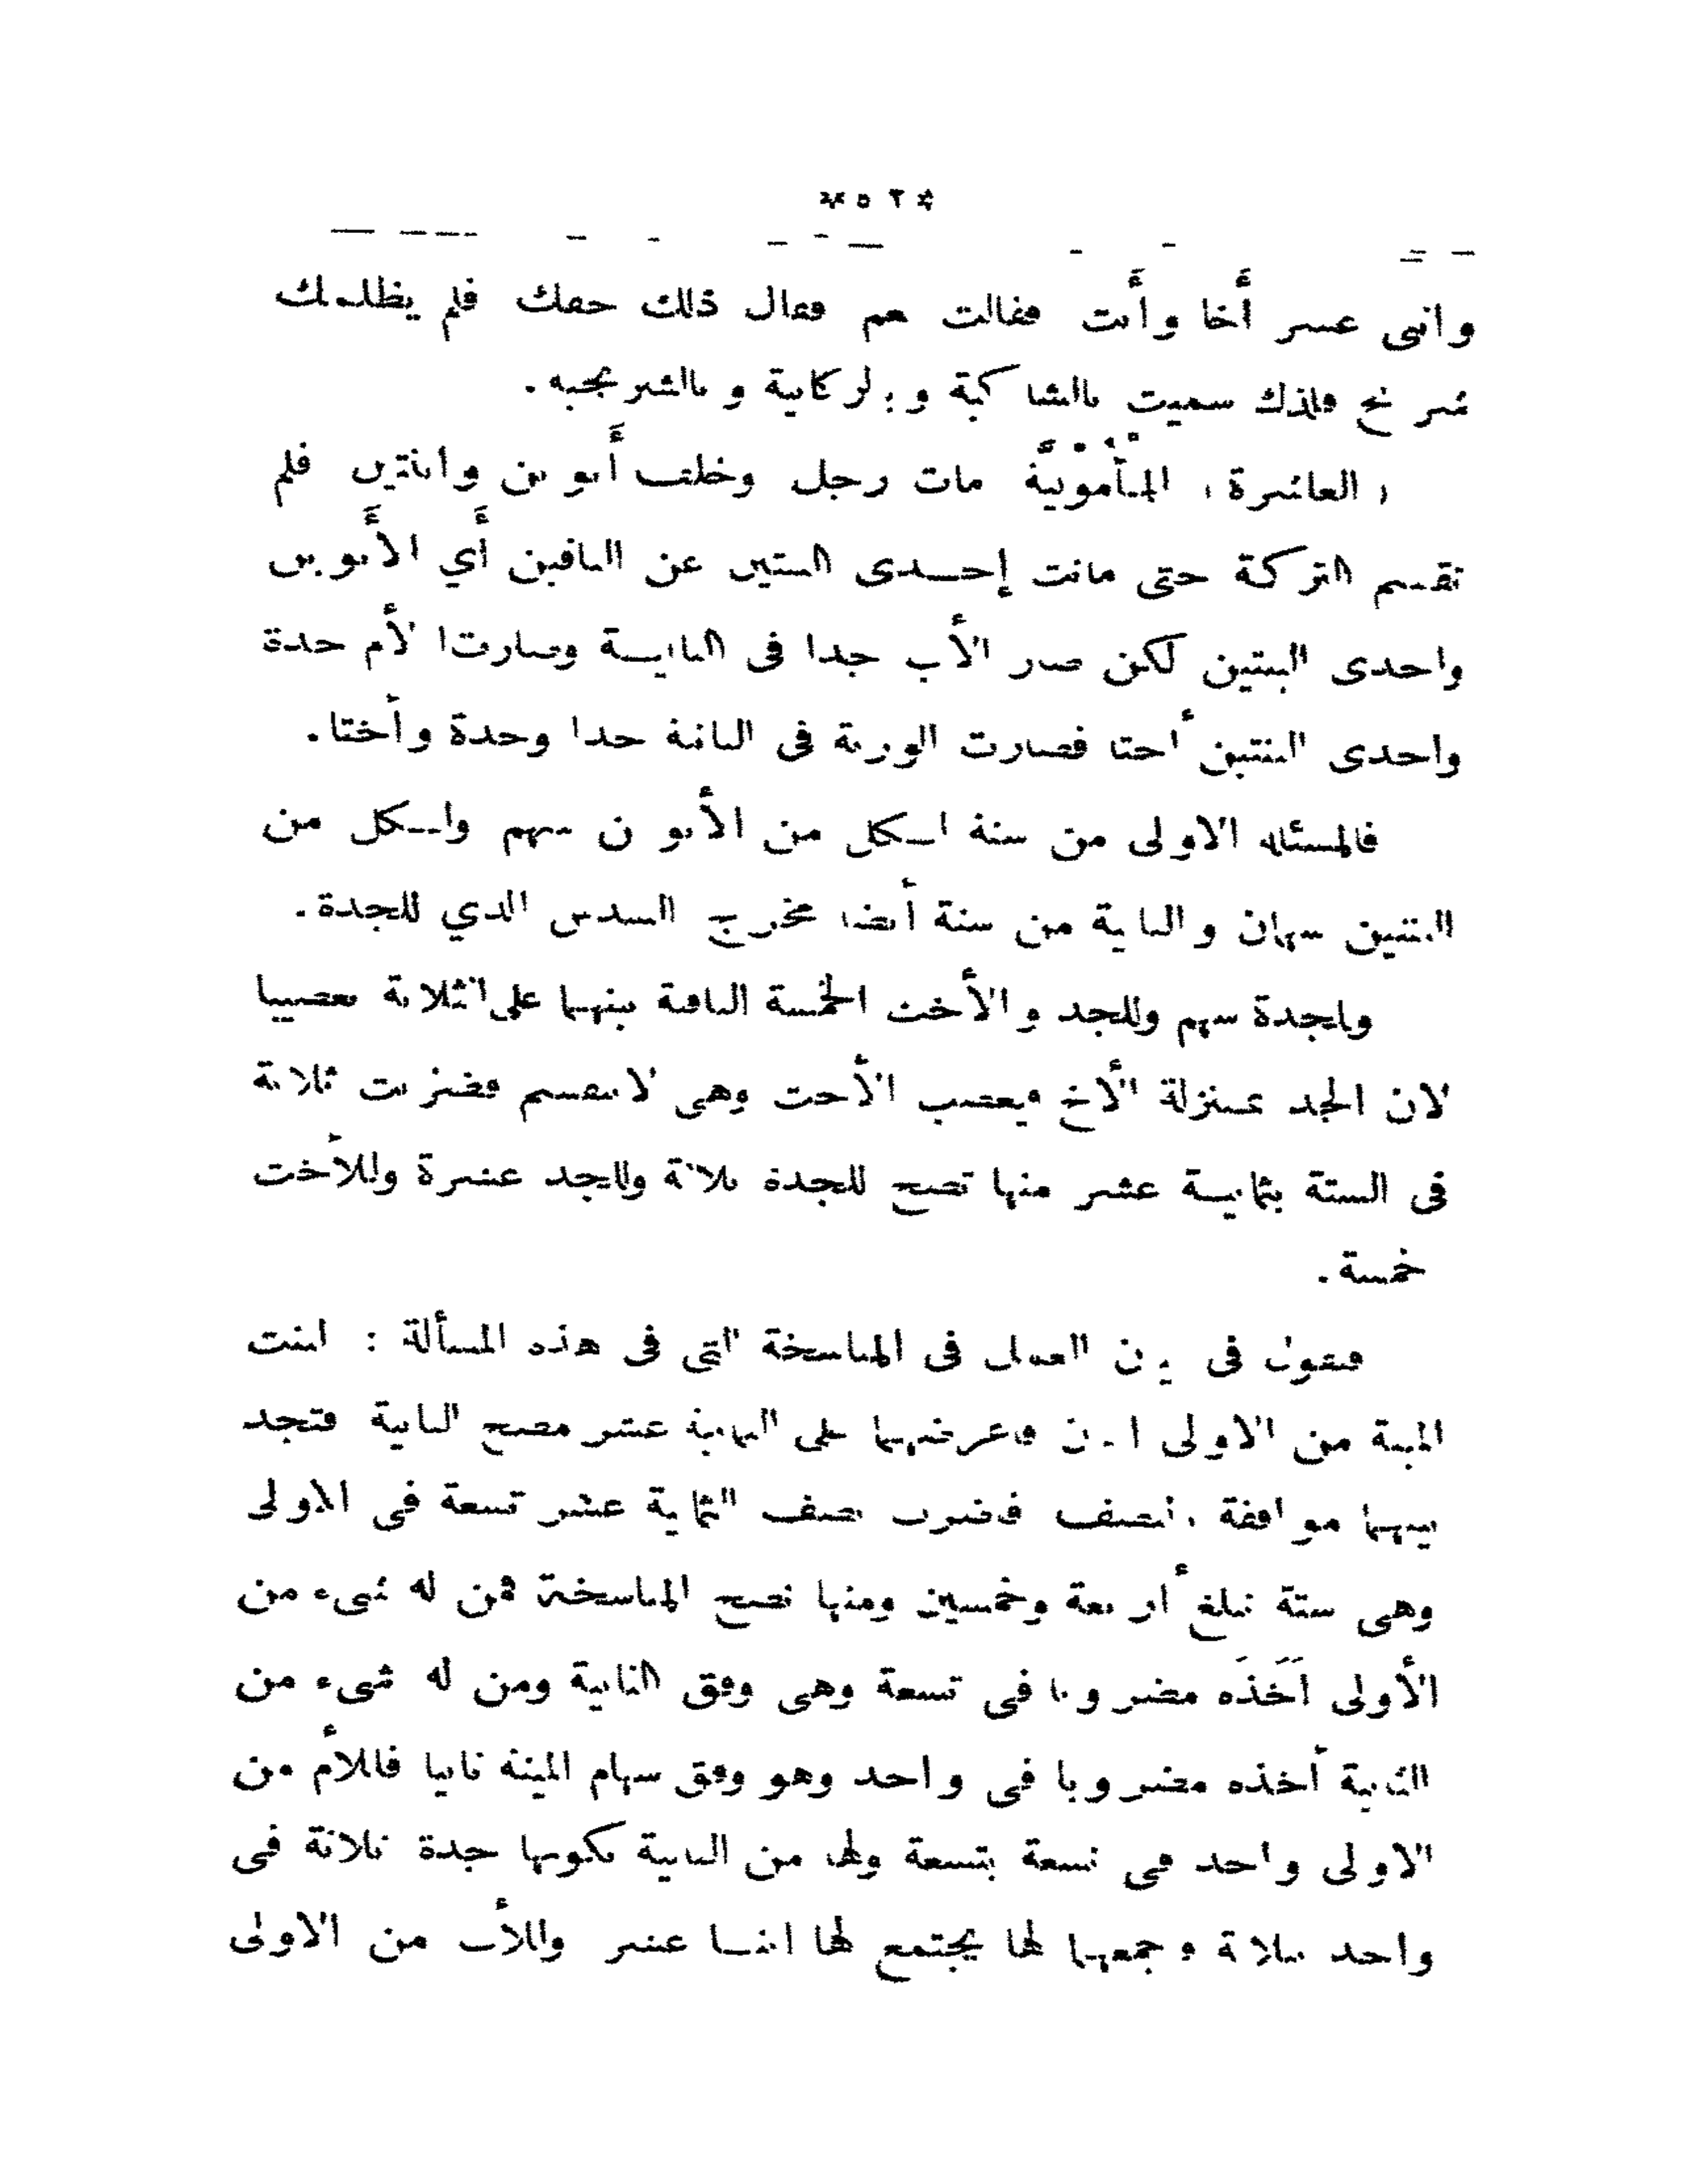 * ٥٢ *
واثنى عشر أخا وأنت فقالت نعم فقال ذلك حقك فلم يظلمك
شريح فلذلك سميت بالشاكية وبالركابية وبالشريحية.
( العاشرة ) المأمونيَّة مات رجل وخلف أبوين وابنتين فلم
تقسم التركة حتى ماتت إحدى البنتين عن الباقين أي الأبوين
واحدى البنتين لكن صار الأب جدا فى الثانيـة وصارت الأم جدة
واحدى البنتين أختا فصارت الورثة فى الثانية جدا وجدة وأختا.
فالمسئلة الاولى من ستة لـكل من الأبوين سهم ولـكل من
البنتين سهمان والثانية من ستة أيضا مخرج السدس الذي للجدة.
وللجدة سهم وللجد والأخت الخمسة الباقية بينهما على ثلاثة تعصيبا
لان الجد بمنزلة الأخ فيعصب الأخت وهى لا تنقسم فضربت ثلاثة
فى الستة بثمانيـة عشر منها تصح للجدة ثلاثة وللجد عشرة وللأخت
خمسة.
فنقول فى العمل فى المناسخة التى فى هذه المسألة : لبنت
الميتة من الاولى اثنان فاعرضهما على الثمانية عشر مصح الثانية فتجد
بينهما موافقة بالنصف فاضرب نصف الثمانية عشر تسعة فى الاولى
وهى ستة تبلغ أربعة وخمسين ومنها تصح المناسخة فمن له شىء من
الأولى أَخَذَه مضروبا فى تسعة وهى وفق الثانية ومن له شىء من
الثانية أخذه مضروبا فى واحد وهو وفق سهام الميتة ثانيا فللأم من
الاولى واحد فى تسعة بتسعة ولها من الثانية بكونها جدة ثلاثة فى
واحد بثلاثة فجمعهما لها يجتمع لها اثنـا عشر وللأب من الاولى